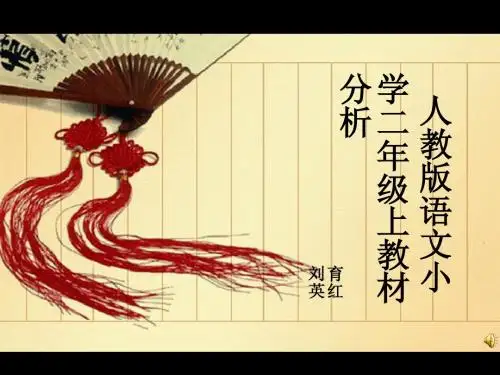 人教版语文小
学二年级上教材
分析
育红
刘英